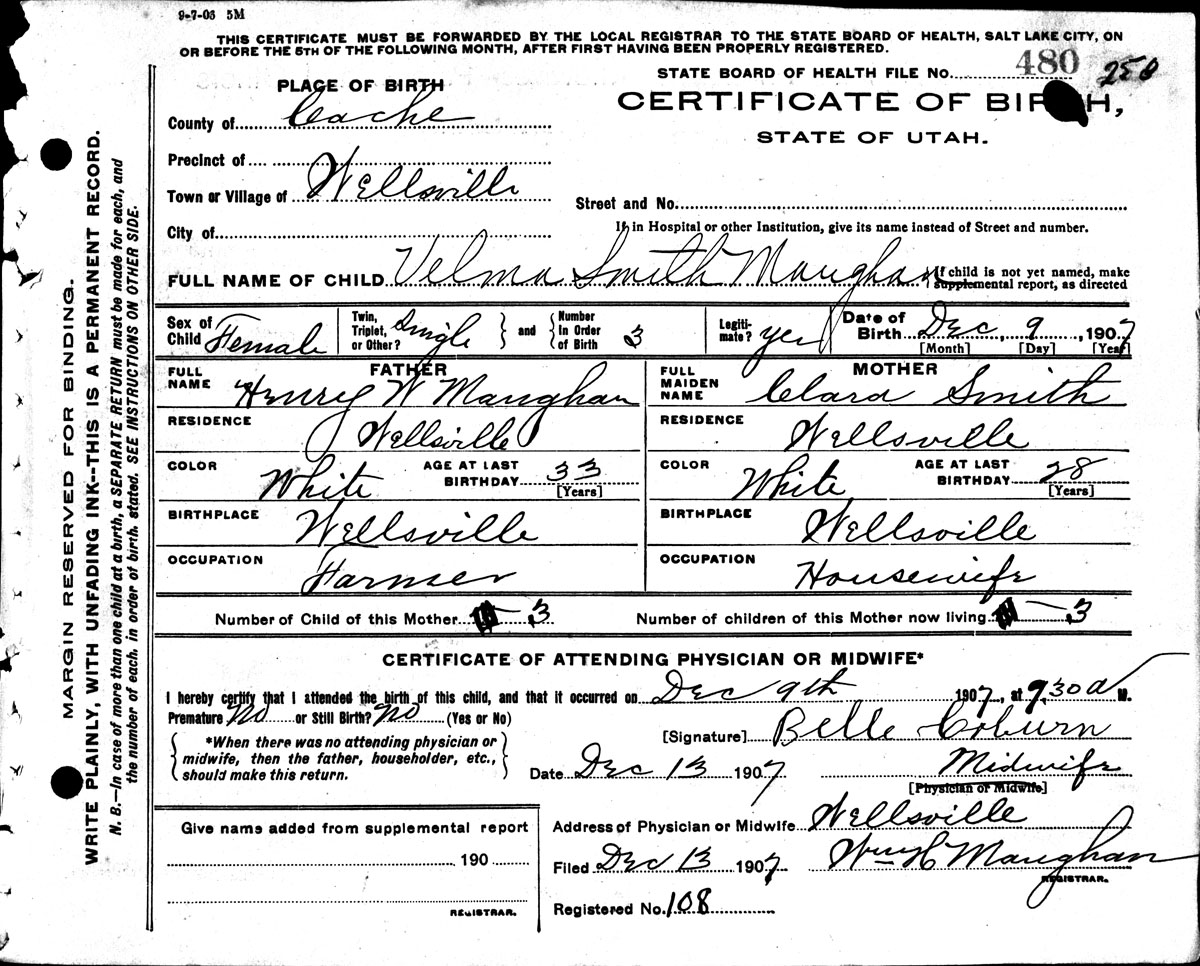 9-7-05 5M
THIS CERTIFICATE MUST BE FORWARDED BY THE LOCAL REGISTRAR TO THE STATE BOARD OF HEALTH, SALT LAKE CITY, ON
OR BEFORE THE 5TH OF THE FOLLOWING MONTH, AFTER FIRST HAVING BEEN PROPERLY REGISTERED.
STATE BOARD OF HEALTH FILE No. 480 258
PLACE OF BIRTH
CERTIFICATE OF BIRTH,
STATE OF UTAH.
County of Cache
Precinct of
Town or Village of Wellsville
Street and No.
City of
If in Hospital or other Institution, give its name instead of Street and number.
FULL NAME OF CHILD Velma Smith Maughan
If child is not yet named, make
supplemental report, as directed
Sex of Child Female
Twin, Triplet, or Other? Single and Number In Order of Birth 3
Legiti-mate? yes
Date of Birth Dec 9, 1907
[Month] [Day] [Year]
FATHER
FULL NAME Henry W Maughan
RESIDENCE Wellsville
COLOR White AGE AT LAST BIRTHDAY 33 [Years]
BIRTHPLACE Wellsville
OCCUPATION Farmer
MOTHER
FULL MAIDEN NAME Clara Smith
RESIDENCE Wellsville
COLOR White AGE AT LAST BIRTHDAY 28 [Years]
BIRTHPLACE Wellsville
OCCUPATION Housewife
Number of Child of this Mother 3 Number of children of this Mother now living 3
CERTIFICATE OF ATTENDING PHYSICIAN OR MIDWIFE*
I hereby certify that I attended the birth of this child, and that it occurred on Dec 9th 1907, at 9.30 a M.
Premature No or Still Birth? No (Yes or No)
*When there was no attending physician or
midwife, then the father, householder, etc.,
should make this return.
[Signature] Belle Coburn
Date Dec 13 1907 Midwife
[Physician or Midwife]
Give name added from supplemental report
190
REGISTRAR.
Address of Physician or Midwife Wellsville
Filed Dec 13 1907 Wm H Maughan
REGISTRAR.
Registered No. 108
MARGIN RESERVED FOR BINDING.
WRITE PLAINLY, WITH UNFADING INK--THIS IS A PERMANENT RECORD.
N. B.—In case of more than one child at a birth, a SEPARATE RETURN must be made for each, and
the number of each, in order of birth, stated. SEE INSTRUCTIONS ON OTHER SIDE.